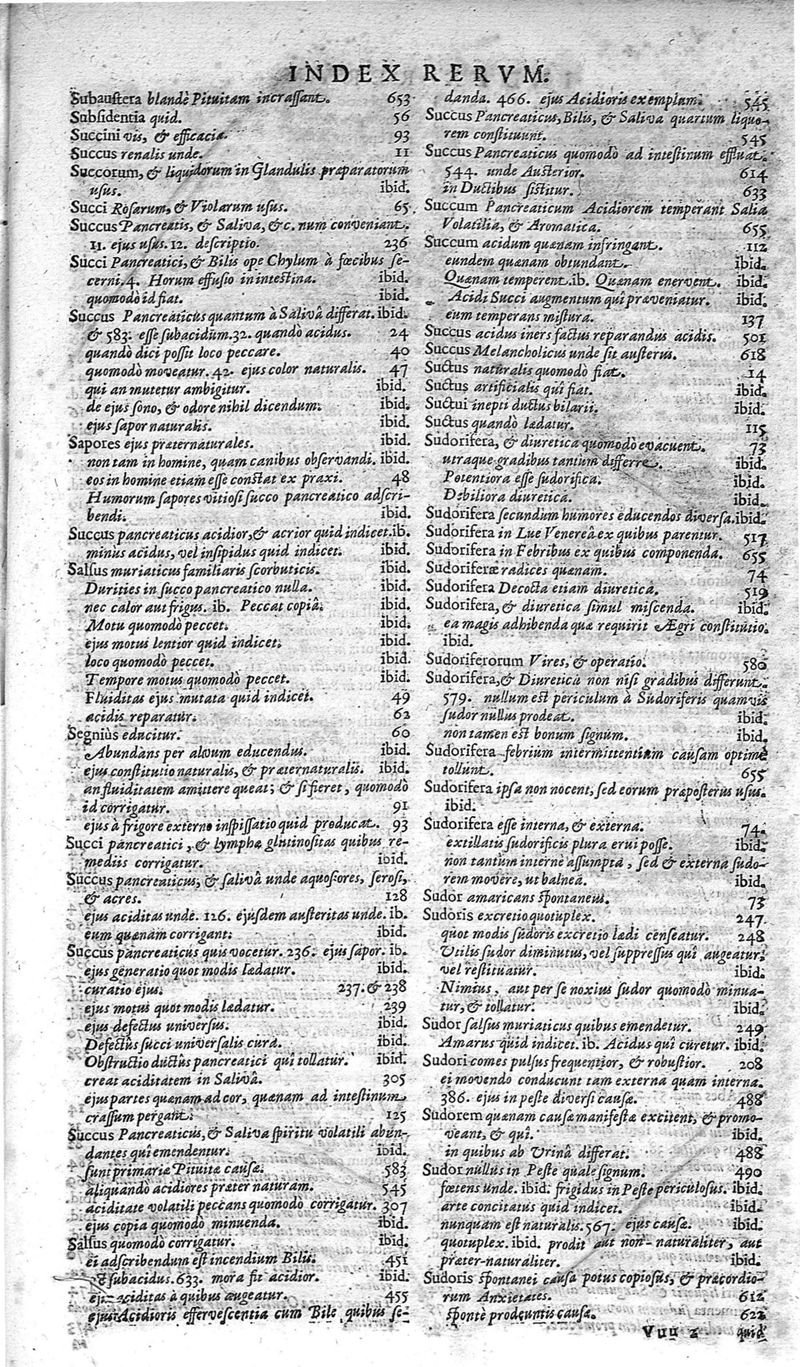 INDEX RERVM.
Subaustera blandè Pituitam incrassant. 653
Subsidentia quid. 56
Succini vis, & efficacia. 93
Succus renalis unde. 11
Succorum, & liquidorum in Glandulis præparatorum
usus. ibid.
Succi Rosarum, & Violarum usus. 65
Succus Pancreatis, & Saliva, &c. num conveniant.
11. ejus usus. 12. descriptio. 236
Succi Pancreatici, & Bilis ope Chylum à fœcibus se-
cerni. 4. Horum effusio in intestina. ibid.
quomodo id fiat. ibid.
Succus Pancreaticus quantum à Salivâ differat. ibid.
& 583. esse subacidum. 32. quando acidus. 24
quando dici possit loco peccare. 40
quomodo moveatur. 42. ejus color naturalis. 47
qui an mutetur ambigitur. ibid.
de ejus sono, & odore nihil dicendum. ibid.
ejus sapor naturalis. ibid.
Sapores ejus præternaturales. ibid.
non tam in homine, quam canibus observandi. ibid.
eos in homine etiam esse constat ex praxi. 48
Humorum sapores vitiosi succo pancreatico adscri-
bendi. ibid.
Succus pancreaticus acidior, & acrior quid indicet. ib.
minus acidus, vel insipidus quid indicet. ibid.
Salsus muriaticus familiaris scorbuticis. ibid.
Durities in succo pancreatico nulla. ibid.
nec calor aut frigus. ib. Peccat copiâ. ibid.
Motu quomodò peccet. ibid.
ejus motus lentior quid indicet. ibid.
loco quomodò peccet. ibid.
Tempore motus quomodò peccet. ibid.
Fluiditas ejus mutata quid indicet. 49
acidis reparatur. 62
Segniùs educitur. 60
Abundans per alvum educendus. ibid.
ejus constitutio naturalis, & præternaturalis. ibid.
an fluiditatem amittere queat; & si fieret, quomodo
id corrigatur. 91
ejus à frigore externo inspissatio quid producat. 93
Succi pancreatici, & lymphæ glutinositas quibus re-
mediis corrigatur. ibid.
Succus pancreaticus, & salivâ unde aquosiores, serosi,
& acres. 128
ejus aciditas unde. 126. ejusdem austeritas unde. ib.
eum quænam corrigant. ibid.
Succus pancreaticus quis vocetur. 236. ejus sapor. ib.
ejus generatio quot modis lædatur. ibid.
curatio ejus. 237. & 238
ejus motus quot modis lædatur. 239
ejus defectus universus. ibid.
Defectus succi universalis cura. ibid.
Obstructio ductus pancreatici quî tollatur. ibid.
creat aciditatem in Salivâ. 305
ejus partes quænam ad cor, quænam ad intestinum
crassum pergant. 125
Succus Pancreaticus, & Saliva spiritu volatili abun-
dantes quî emendentur. ibid.
sunt primariæ Pituitæ causæ. 583
aliquandò acidiores præter naturam. 545
aciditate volatili peccans quomodò corrigatur. 307
ejus copia quomodò minuenda. ibid.
Salsus quomodò corrigatur. ibid.
ei adscribendum est incendium Bilis. 451
& subacidus. 633. mora fit acidior. ibid.
ejus aciditas à quibus augeatur. 455
ejus Acidioris effervescentia cum Bile quibus se-
danda. 466. ejus Acidioris exemplum. 545
Succus Pancreaticus, Bilis, & Saliva quartum liquo-
rem constituunt. 545
Succus Pancreaticus quomodò ad intestinum effluat.
544. unde Austerior. 614
in Ductibus sistitur. 633
Succum Pancreaticum Acidiorem temperant Salia
Volatilia, & Aromatica. 655
Succum acidum quænam infringant. 112
eundem quænam obtundant. ibid.
Quænam temperent. ib. Quænam enervent. ibid.
Acidi Succi augmentum qui præveniatur. ibid.
eum temperans mistura. 137
Succus acidus iners factus reparandus acidis. 501
Succus Melancholicus unde sit austerus. 618
Suctus naturalis quomodò fiat. 14
Suctus artificialis quî fiat. ibid.
Suctui inepti ductus bilarii. ibid.
Suctus quandò lædatur. 115
Sudorifera, & diuretica quomodò evacuent. 73
utraque gradibus tantum differre. ibid.
Potentiora esse sudorifica. ibid.
Debiliora diuretica. ibid.
Sudorifera secundum humores educendos diversa. ibid.
Sudorifera in Lue Venereâ ex quibus parentur. 517
Sudorifera in Febribus ex quibus componenda. 655
Sudoriferæ radices quænam. 74
Sudorifera Decocta etiam diuretica. 519
Sudorifera, & diuretica simul miscenda. ibid.
ea magis adhibenda quæ requirit Ægri constitutio.
ibid.
Sudoriferorum Vires, & operatio. 580
Sudorifera, & Diuretica non nisi gradibus differunt.
579. nullum est periculum à Sudoriferis quamvis
sudor nullus prodeat. ibid.
non tamen est bonum signum. ibid.
Sudorifera febrium intermittentium causam optimè
tollunt. 655
Sudorifera ipsa non nocent, sed eorum præposterus usus.
ibid.
Sudorifera esse interna, & externa. 74
extillatis sudorificis plura erui posse. ibid.
non tantum internè assumpta, sed & externa sudo-
rem movere, ut balnea. ibid.
Sudor amaricans spontaneus. 73
Sudoris excretio quotuplex. 247.
quot modis sudoris excretio lædi censeatur. 248
Utilis sudor diminutus, vel suppressus quî augeatur,
vel restituatur. ibid.
Nimius, aut per se noxius sudor quomodò minua-
tur, & tollatur. ibid.
Sudor salsus muriaticus quibus emendetur. 249
Amarus quid indicet. ib. Acidus quî curetur. ibid.
Sudori comes pulsus frequentior, & robustior. 208
ei movendo conducunt tam externa quam interna.
386. ejus in peste diversi causæ. 488
Sudorem quænam causæ manifestæ excitent, & promo-
veant, & quî. ibid.
in quibus ab Urinâ differat. 488
Sudor nullus in Peste quale signum. 490
fœtens unde. ibid. frigidus in Peste periculosus. ibid.
arte concitatus quid indicet. ibid.
nunquam est naturalis. 567. ejus causæ. ibid.
quotuplex. ibid. prodit aut non-naturaliter, aut
præter-naturaliter. ibid.
Sudoris spontanei causa potus copiosus, & præcordio-
rum Anxietates. 612
spontè prodeuntis causa. 622
Vuu 2 quid